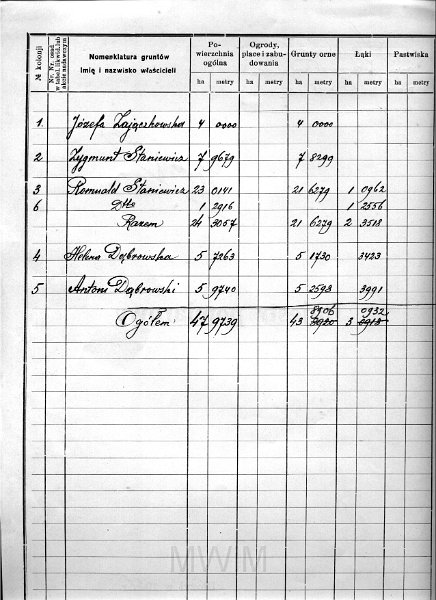 № kolonji
Nr. Nr. osad w tabel. likwid. lub akcie nadawczym
Nomenklatura gruntów
Imię i nazwisko właścicieli
Powierzchnia ogólna
Ogrody, place i zabudowania
Grunty orne
Łąki
Pastwiska
ha metry ha metry ha metry ha metry ha metry
1 Józefa Zajączkowska 4 0000 4 0000
2 Zygmunt Staniewicz 7 9679 7 8299
3 Romuald Staniewicz 23 0141 21 6279 1 0962
6 Dtto 1 2916 1 2556
Razem 24 3057 21 6279 2 3518
4 Helena Dąbrowska 5 7263 5 1730 3423
5 Antoni Dąbrowski 5 9740 5 2598 3991
8906 0932
Ogółem 47 9739 43 3
MWM